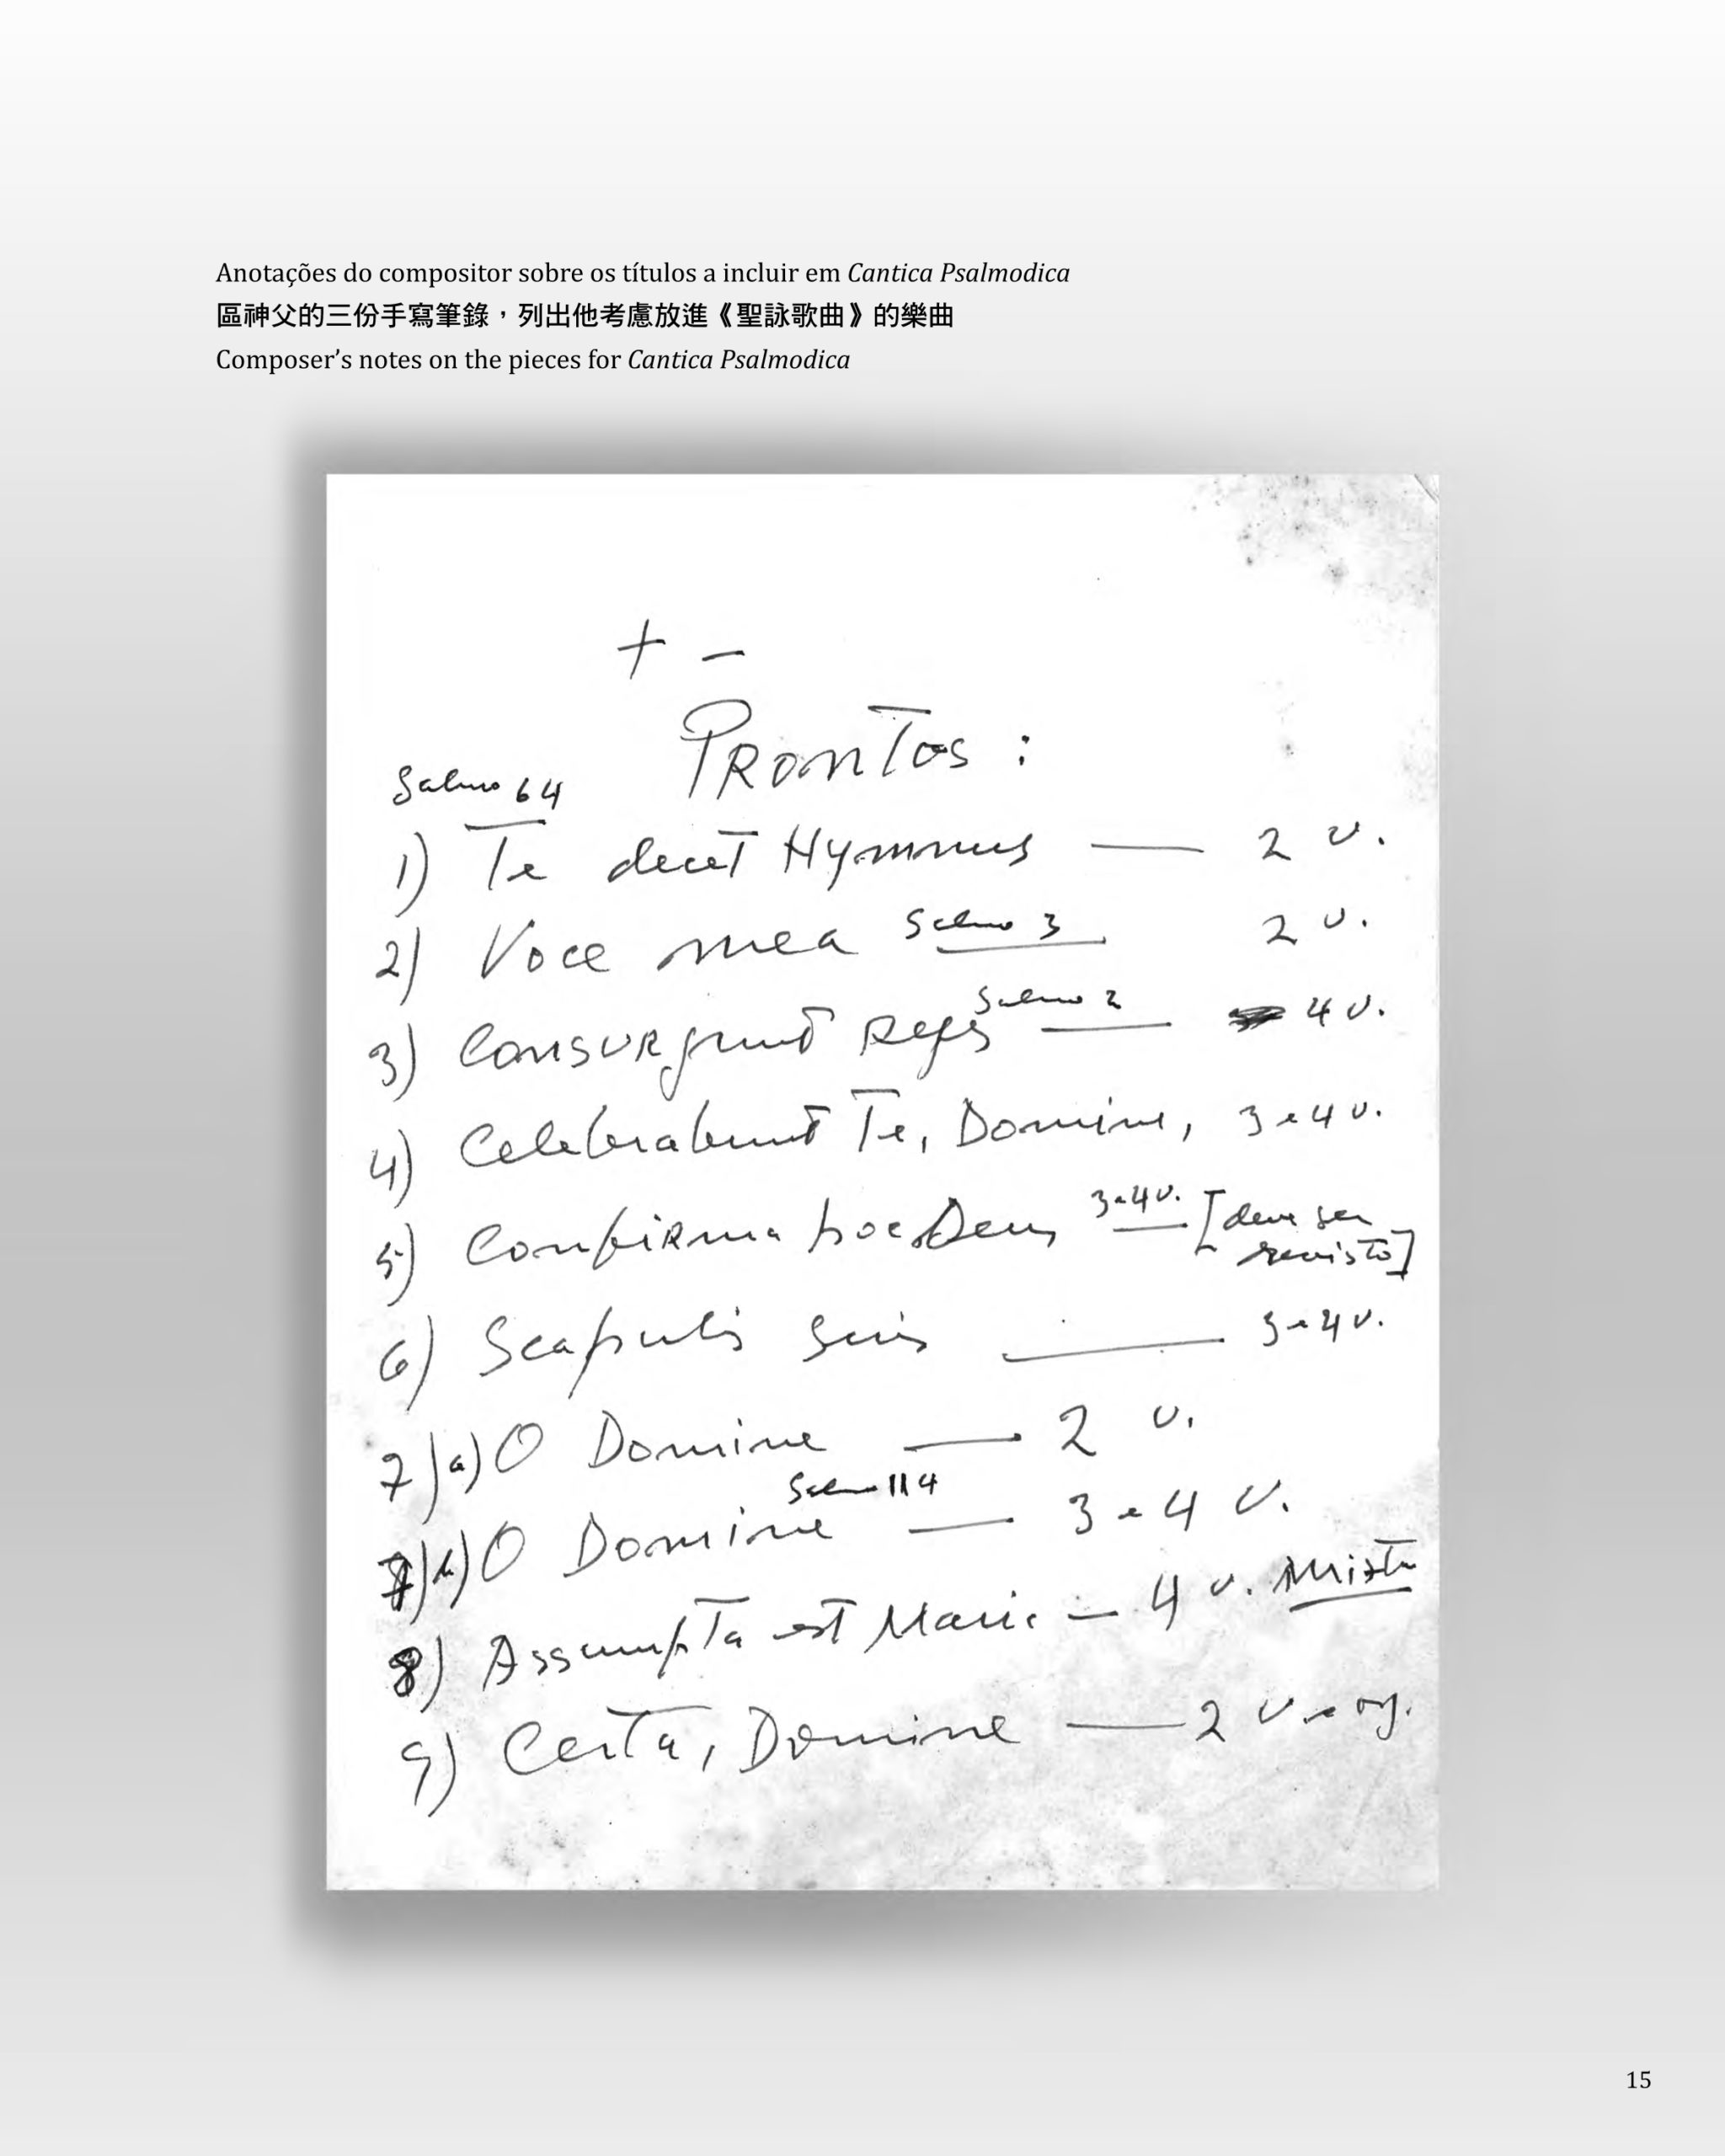 Anotações do compositor sobre os títulos a incluir em Cantica Psalmodica
區神父的三份手寫筆錄，列出他考慮放進《聖詠歌曲》的樂曲
Composer’s notes on the pieces for Cantica Psalmodica
+ –
Prontos :
Salmo 64
1) Te decet Hymnus — 2 v.
2) Voce mea Salmo 3 — 2 v.
3) Consurgunt Reges Salmo 2 — 4 v.
4) Celebrabunt Te, Domine, 3 e 4 v.
5) Confirma hoc Deus 3 e 4 v. — [deve ser
revisto]
6) Scapulis suis — 3 e 4 v.
7) a) O Domine — 2 v.
Salmo 114
7) b) O Domine — 3 e 4 v.
8) Assumpta est Maria — 4 v. Mistas
9) Certa, Domine — 2 v. e org.
15